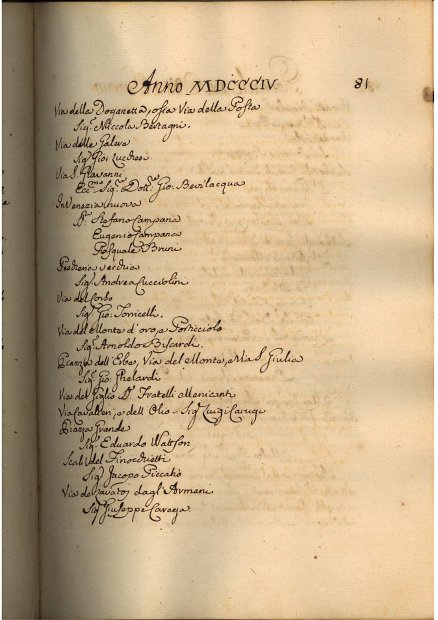 Anno MDCCCIV. 81
Via della Doganetta, ossia Via della Posta
Sig.r Niccola Bertagni.
Via delle Galere
Sig.r Gio: Lucchesi
Via S. Giovanni
Ecc.mo Sig.re Dott.re Gio: Bevilacqua
In Venezia nuova
Stefano Campana
Eugenio Campana
Pasquale Bruni
Pescheria vecchia
Sig.r Andrea Cucciolini
Via del Corso
Sig.r Gio: Torricelli.
Via del Monte d'oro, e Porticciolo
Sig.r Arnoldo Biscardi.
Piazza dell'Erbe, Via del Monte, e Via S. Giulia
Sig.r Gio: Ghelardi
Via del Giglio Fratelli Menicanti
Via Cavalieri, e dell'Olio - Sig.r Luigi Carugi
Piazza Grande
Sig.r Eduardo Wattson
Scali del Finocchietti
Sig.r Jacopo Piccalio
Via de Lavatoj dagl'Armeni
Sig.r Giuseppe Carega